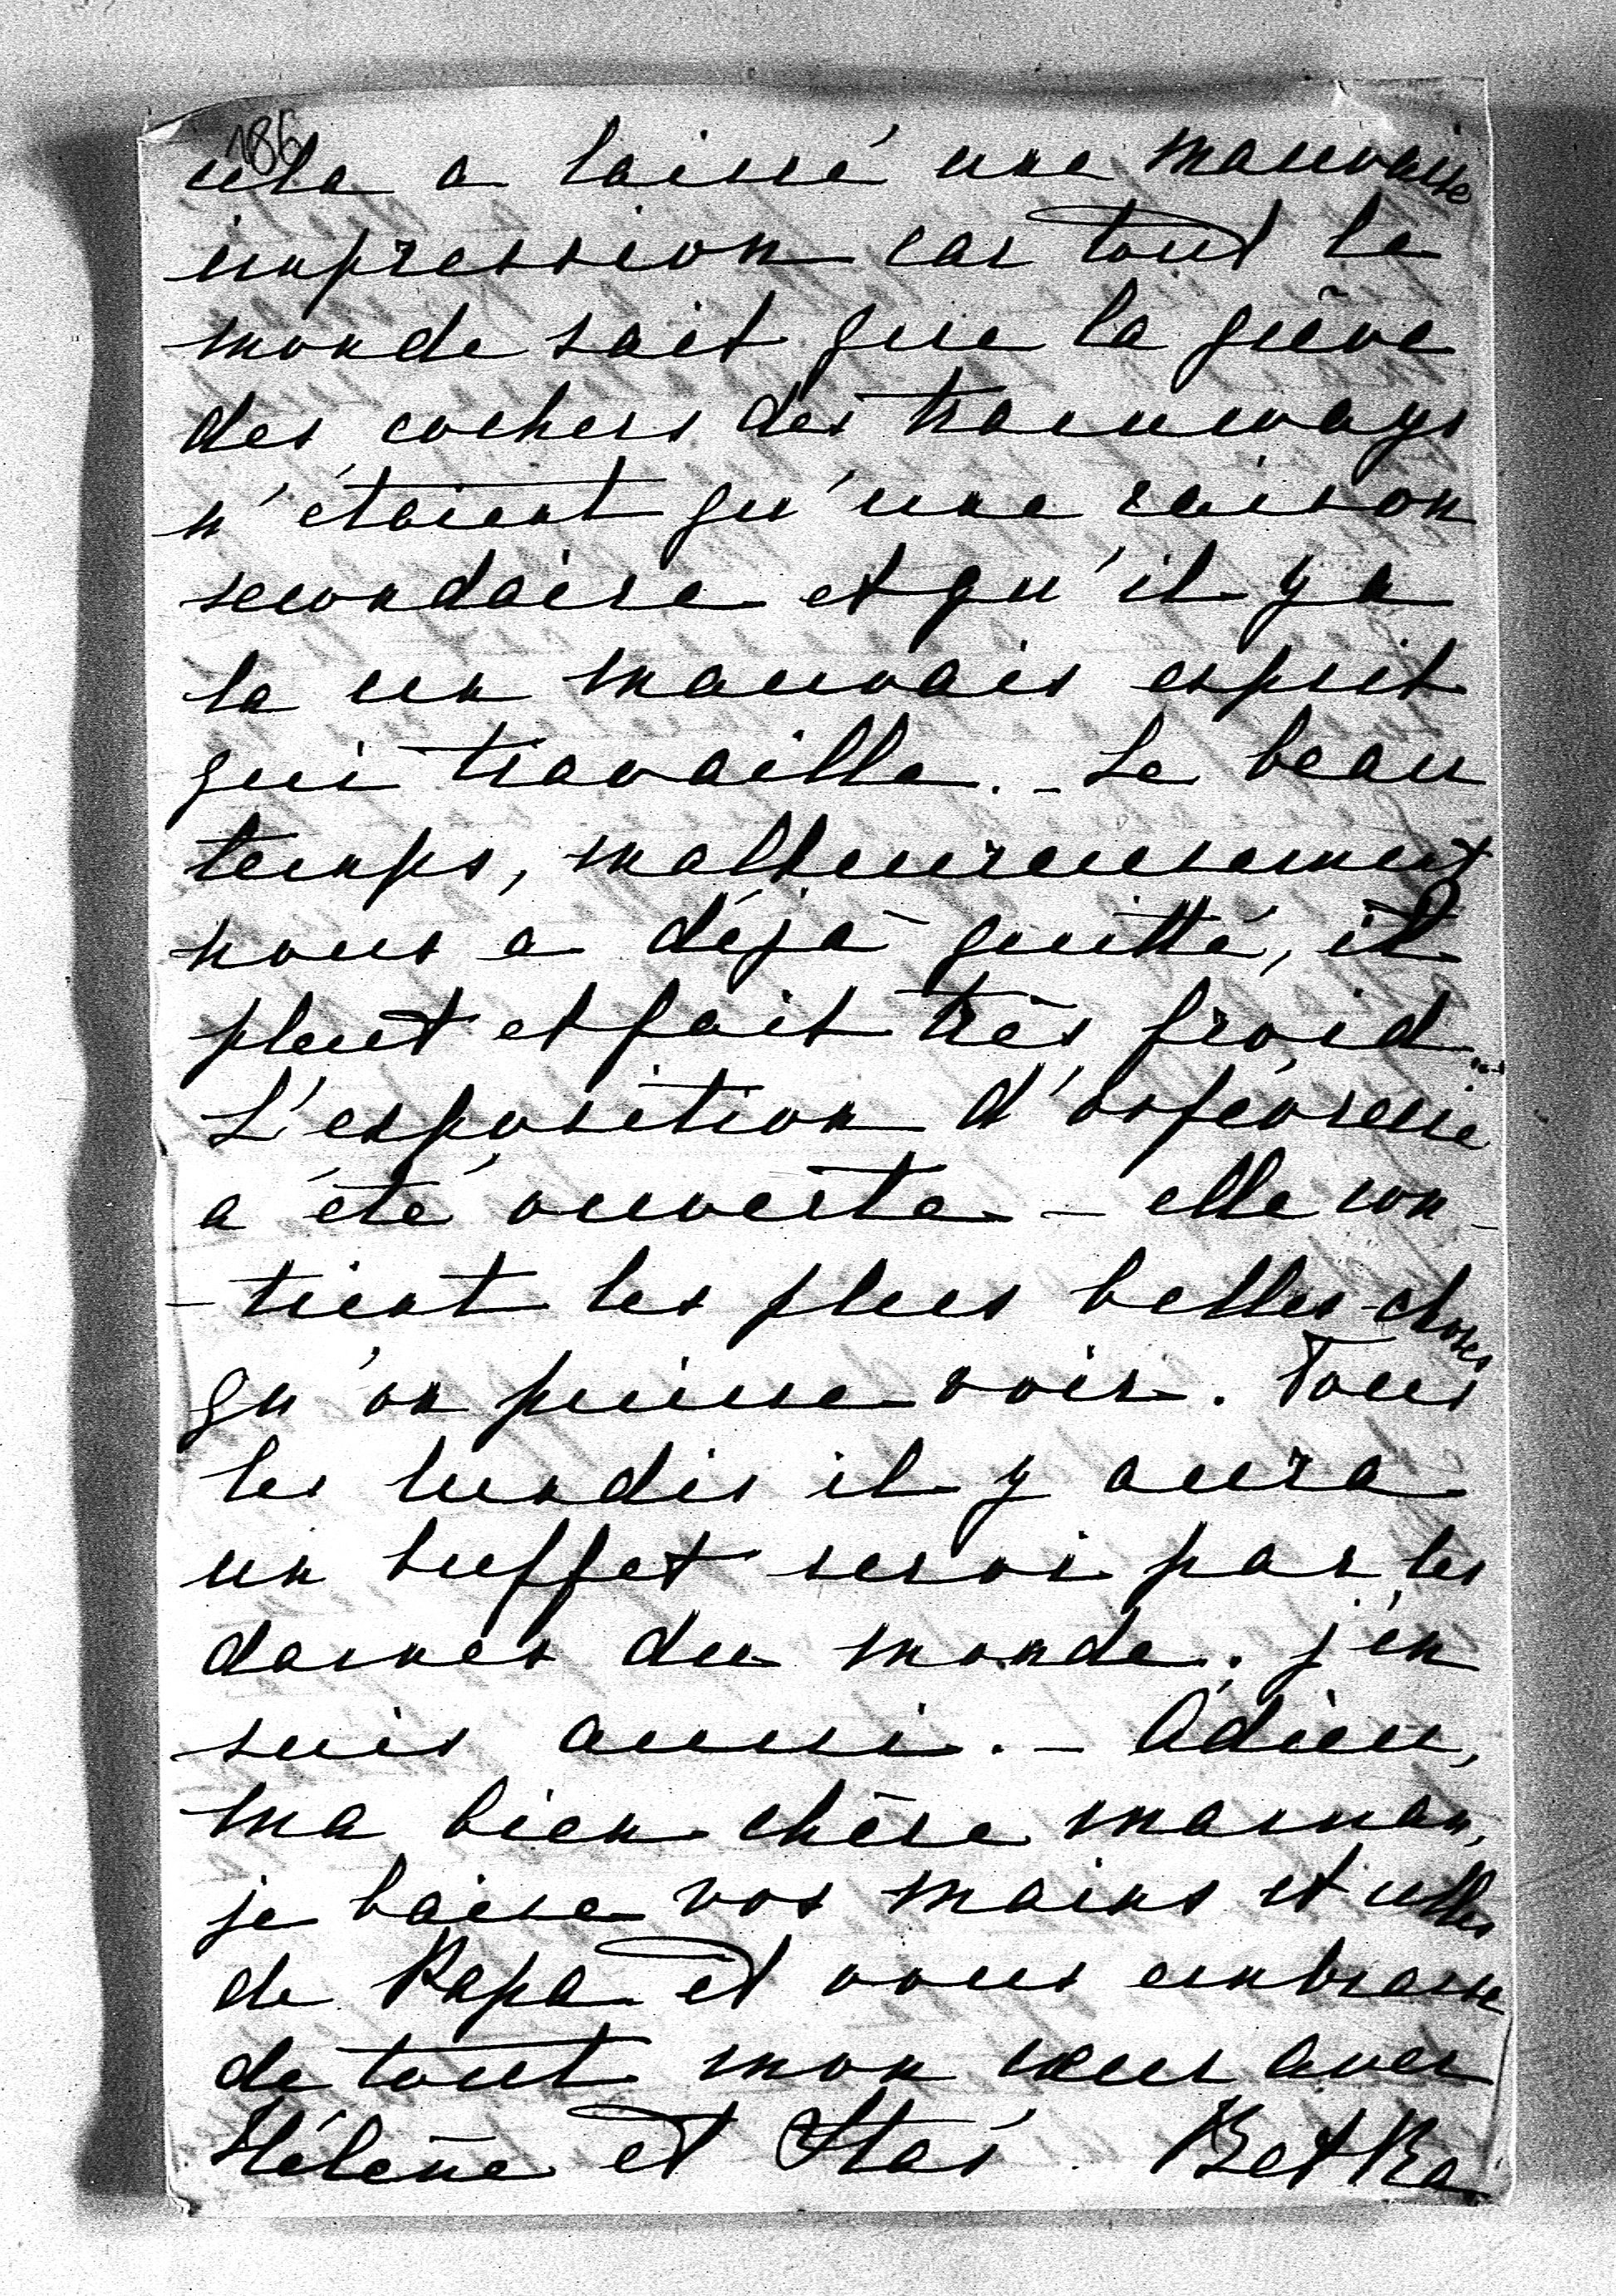 186
cela a laissé une mauvaise
impression car tout le
monde sait que la grève
des cochers des tramways
n'étaient qu'une raison
secondaire et qu'il y a
la un mauvais esprit
qui travaille. - Le beau
temps, malheureusement
nous a déjà quitté, il
pleut et fait très froid...
L'exposition d'orfèvrerie
a été ouverte - elle con-
- tient les plus belles choses
qu'on puisse voir. Tous
les lundis il y aura
un buffet servi par les
dames du monde. j'en
suis aussi. - Adieu,
ma bien chère maman,
je baise vos mains et celles
de Papa et vous embrasse
de tout mon cœur avec
Hélène et Stas. Betka